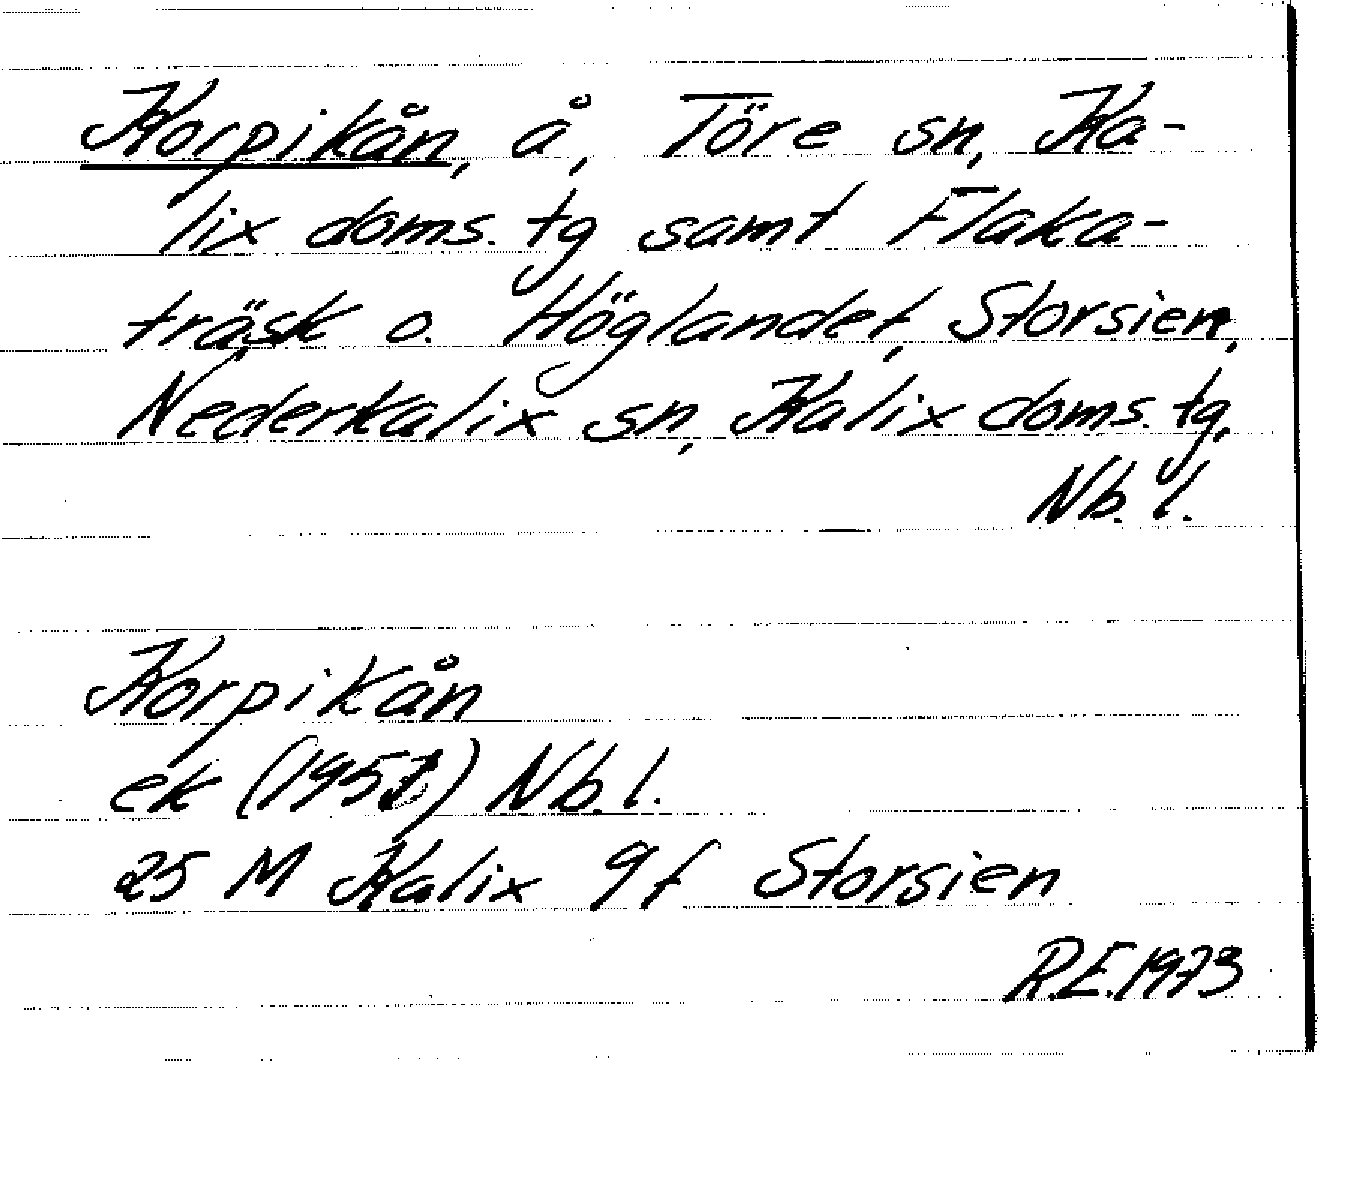 Korpikån, å, Töre sn, Ka-
lix doms. tg samt Flaka-
träsk o. Höglandet, Storsien,
Nederkalix sn, Kalix doms. tg,
Nb. l.
Korpikån
ek (1951) Nb. l.
25 M Kalix 9f Storsien
R.E. 1973